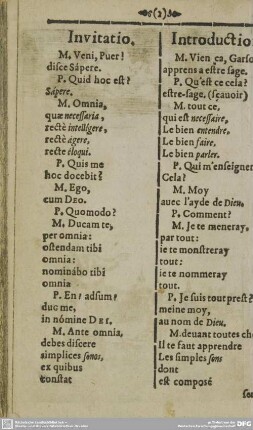 (2)
Invitatio.
M. Veni, Puer!
disce Sápere.
P. Quid hoc est?
Sápere.
M. Omnia,
quæ necessaria,
rectè intellígere,
rectè ágere,
recte éloqui.
P. Quis me
hoc docebit?
M. Ego,
cum DEO.
P. Quomodo?
M. Ducam te,
per omnia:
ostendam tibi
omnia:
nominábo tibi
omnia
P. En! adsum!
duc me,
in nómine DEI.
M. Ante omnia,
debes discere
simplices sonos,
ex quibus
constat
Introductio
M. Vien ça, Garso
apprens a estre sage.
P. Qu'est ce cela?
estre-sage. (sçauoir)
M. tout ce,
qui est necessaire,
Le bien entendre,
Le bien faire,
Le bien parler.
P. Qui m'enseigner
Cela?
M. Moy
avec l'ayde de Dieu.
P. Comment?
M. Je te meneray,
par tout:
ie te monstreray
tout:
ie te nommeray
tout.
P. Je suis tout prest?
meine moy,
au nom de Dieu.
M. devant toutes ch
Il te faut apprendre
Les simples sons
dont
est composé